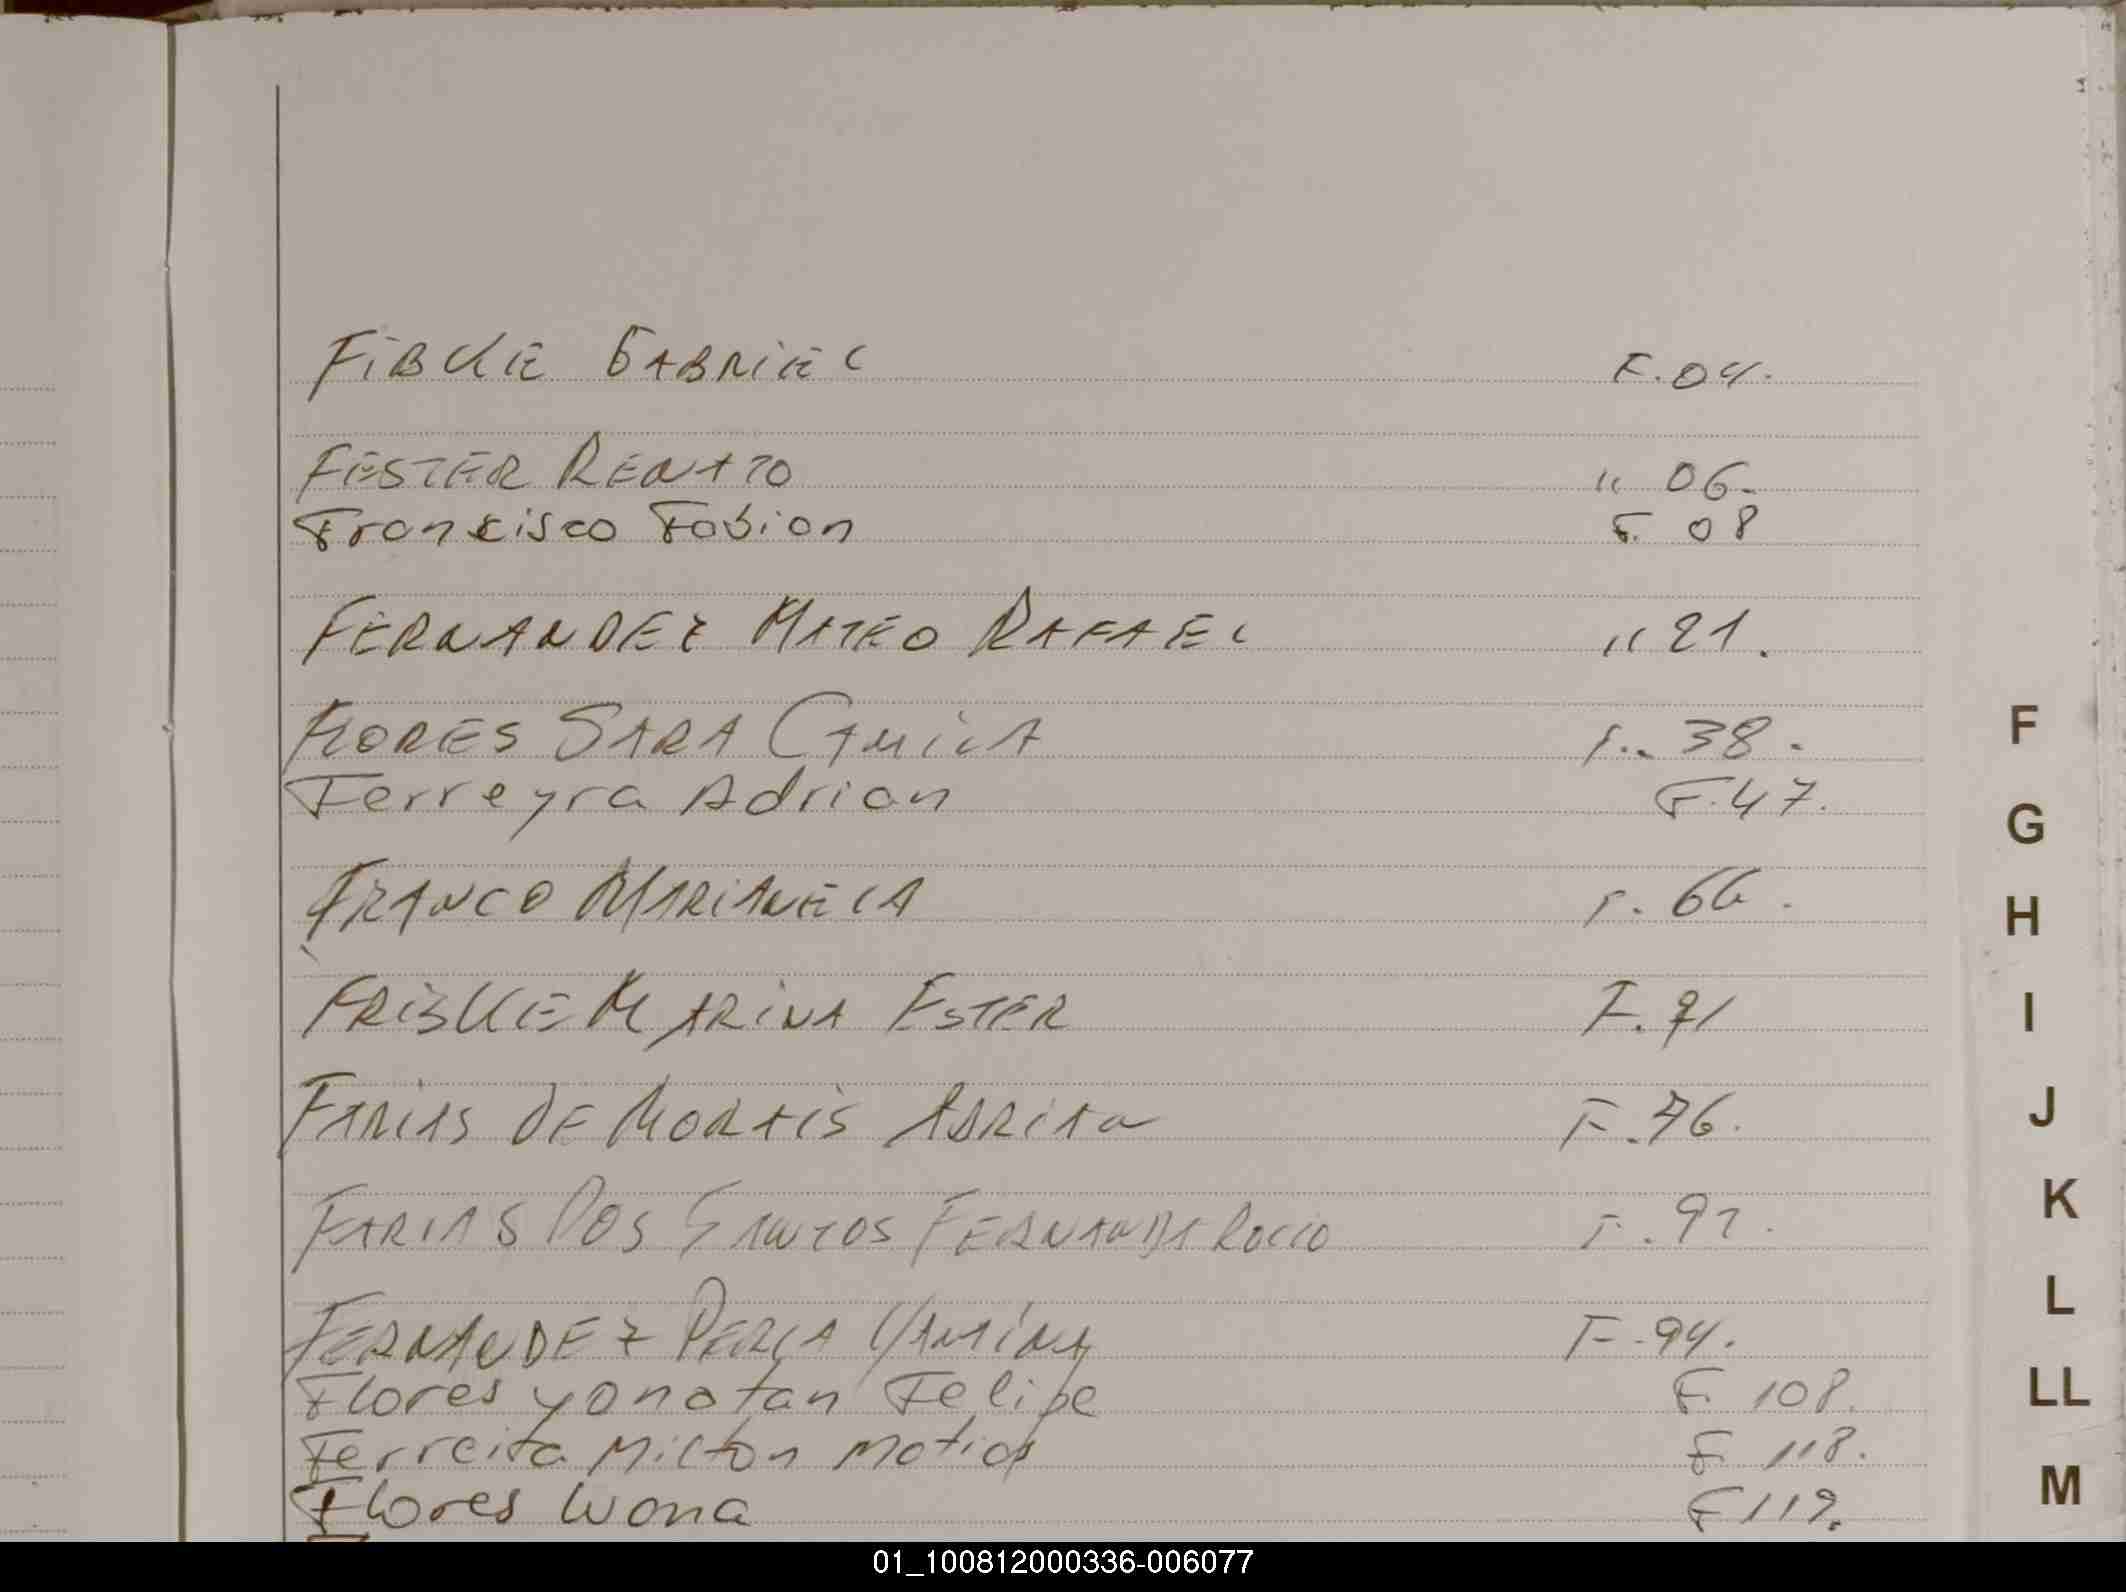 FIBCKE GABRIEL F.04.
FESTER RENATO " 06.
Francisco Fabian F. 08
FERNANDEZ MATEO RAFAEL " 21.
FLORES SARA CAMILA F.. 38.
Ferreyra Adrian F.47.
FRANCO MARIANELA F. 66.
FRISKE MARINA ESTER F. 71
FARIAS DE MORAIS ADRIAN F.76.
FARIAS DOS SANTOS FERNANDA ROCIO F. 92.
FERNANDEZ PERLA YAMINA F. 94.
Flores yonatan Felipe F. 108.
Ferreira Milton Matias F. 118.
Flores F 119.
F
G
H
I
J
K
L
LL
M
01_100812000336-006077